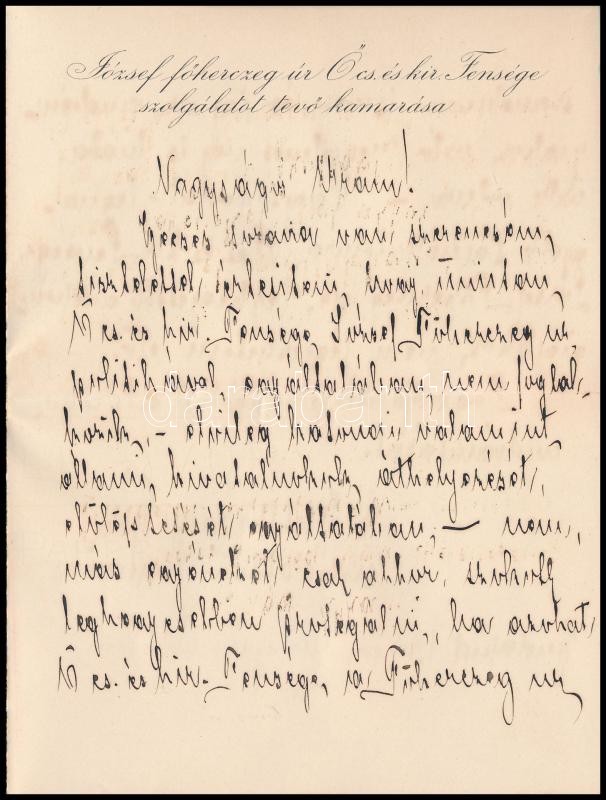 József főherczeg úr Ő cs. és kir. Fensége
szolgálatot tevő kamarása
Nagyságos Uram!
van szerencsém,
tisztelettel értesíteni, hogy miután
Ő cs. és kir. Fensége, József Főherczeg úr,
politikával egyáltalában nem foglal-
kozik, – elvileg katonai valamint
állami hivatalnokok áthelyezését,
előléptetését egyáltalában, – nem,
más egyeneket csak akkor szokott
legkegyesebben protegálni, ha azokat
Ő cs. és kir. Fensége, a Főherczeg úr
darabanth